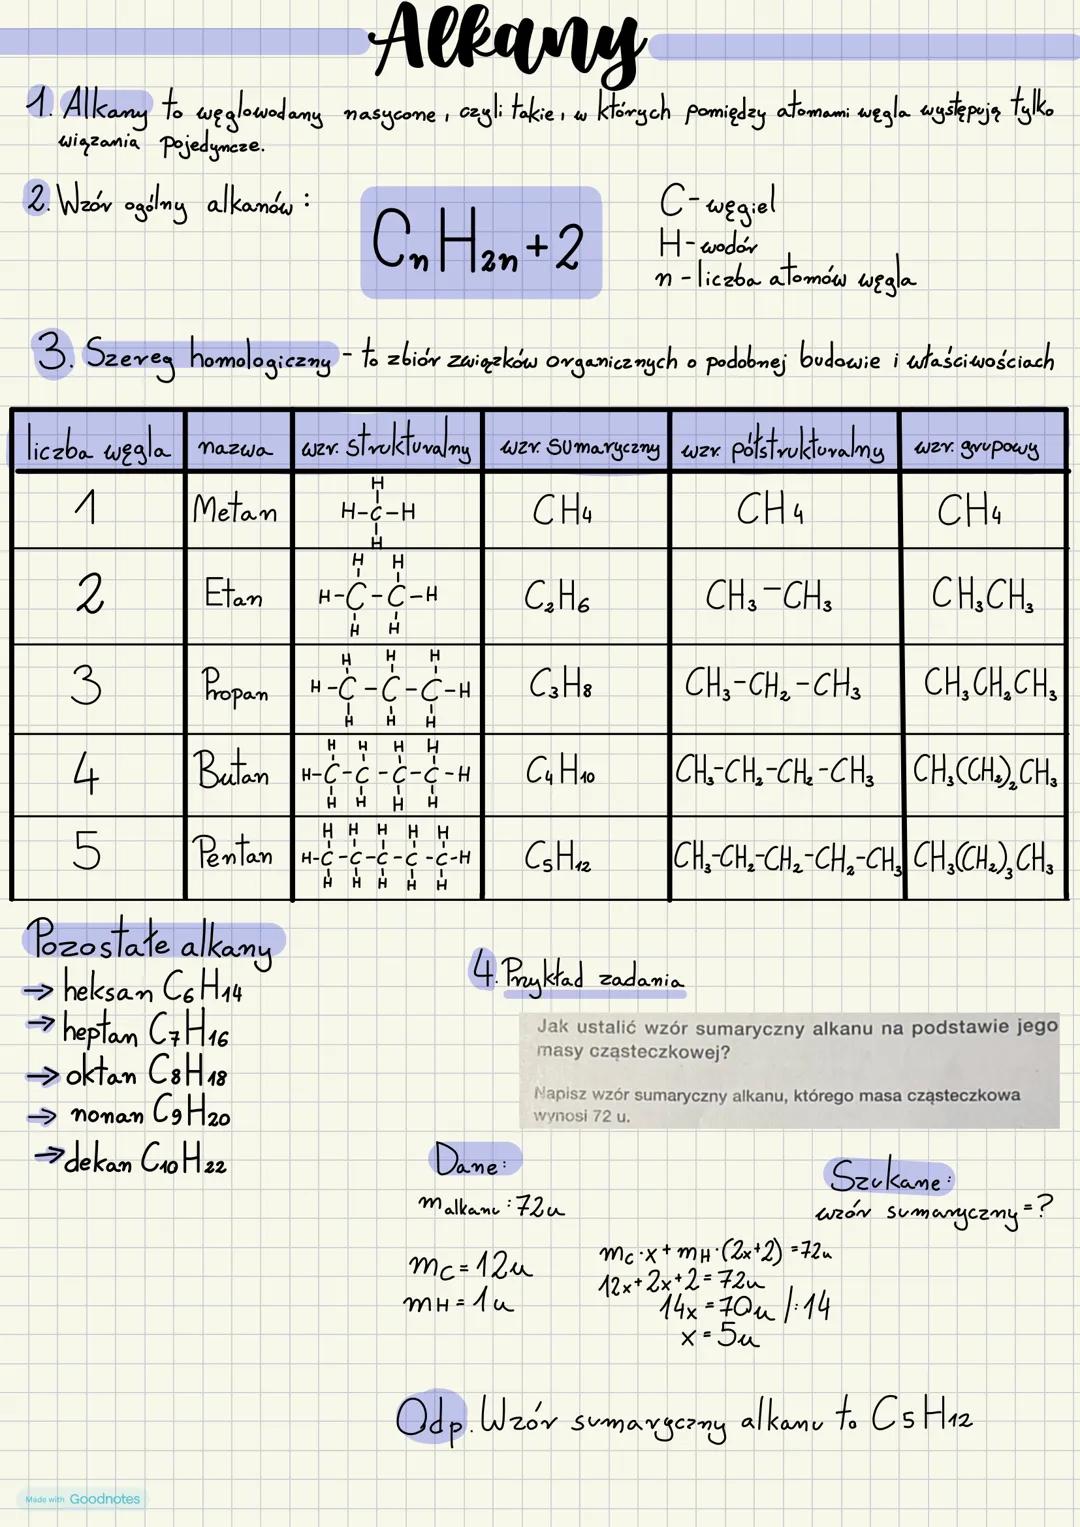 Alkany
1. Alkany to węglowodany nasycone, czyli takie, w których pomiędzy atomami węgla występują tylko
wiązania pojedyncze.
2. Wzór ogólny alkanów:
CnH2n+2
C - węgiel
H - wodór
n - liczba atomów węgla
3. Szereg homologiczny - to zbiór związków organicznych o podobnej budowie i właściwościach
liczba węgla nazwa wzr. strukturalny wzr. sumaryczny wzr. półstrukturalny wzr. grupowy
H
1 Metan H-C-H CH₄ CH₄ CH₄
H
H H
2 Etan H-C-C-H C₂H₆ CH₃-CH₃ CH₃CH₃
H H
H H H
3 Propan H-C-C-C-H C₃H₈ CH₃-CH₂-CH₃ CH₃CH₂CH₃
H H H
H H H H
4 Butan H-C-C-C-C-H C₄H₁₀ CH₃-CH₂-CH₂-CH₃ CH₃(CH₂)₂CH₃
H H H H
H H H H H
5 Pentan H-C-C-C-C-C-H C₅H₁₂ CH₃-CH₂-CH₂-CH₂-CH₃ CH₃(CH₂)₃CH₃
H H H H H
Pozostałe alkany
→ heksan C₆H₁₄
→ heptan C₇H₁₆
→ oktan C₈H₁₈
→ nonan C₉H₂₀
→ dekan C₁₀H₂₂
4. Przykład zadania
Jak ustalić wzór sumaryczny alkanu na podstawie jego
masy cząsteczkowej?
Napisz wzór sumaryczny alkanu, którego masa cząsteczkowa
wynosi 72 u.
Dane:
m alkanu: 72u
mC = 12u
mH = 1u
Szukane:
wzór sumaryczny = ?
mC·x + mH·(2x+2) = 72u
12x + 2x + 2 = 72u
14x = 70u /:14
x = 5u
Odp. Wzór sumaryczny alkanu to C₅H₁₂
Made with Goodnotes